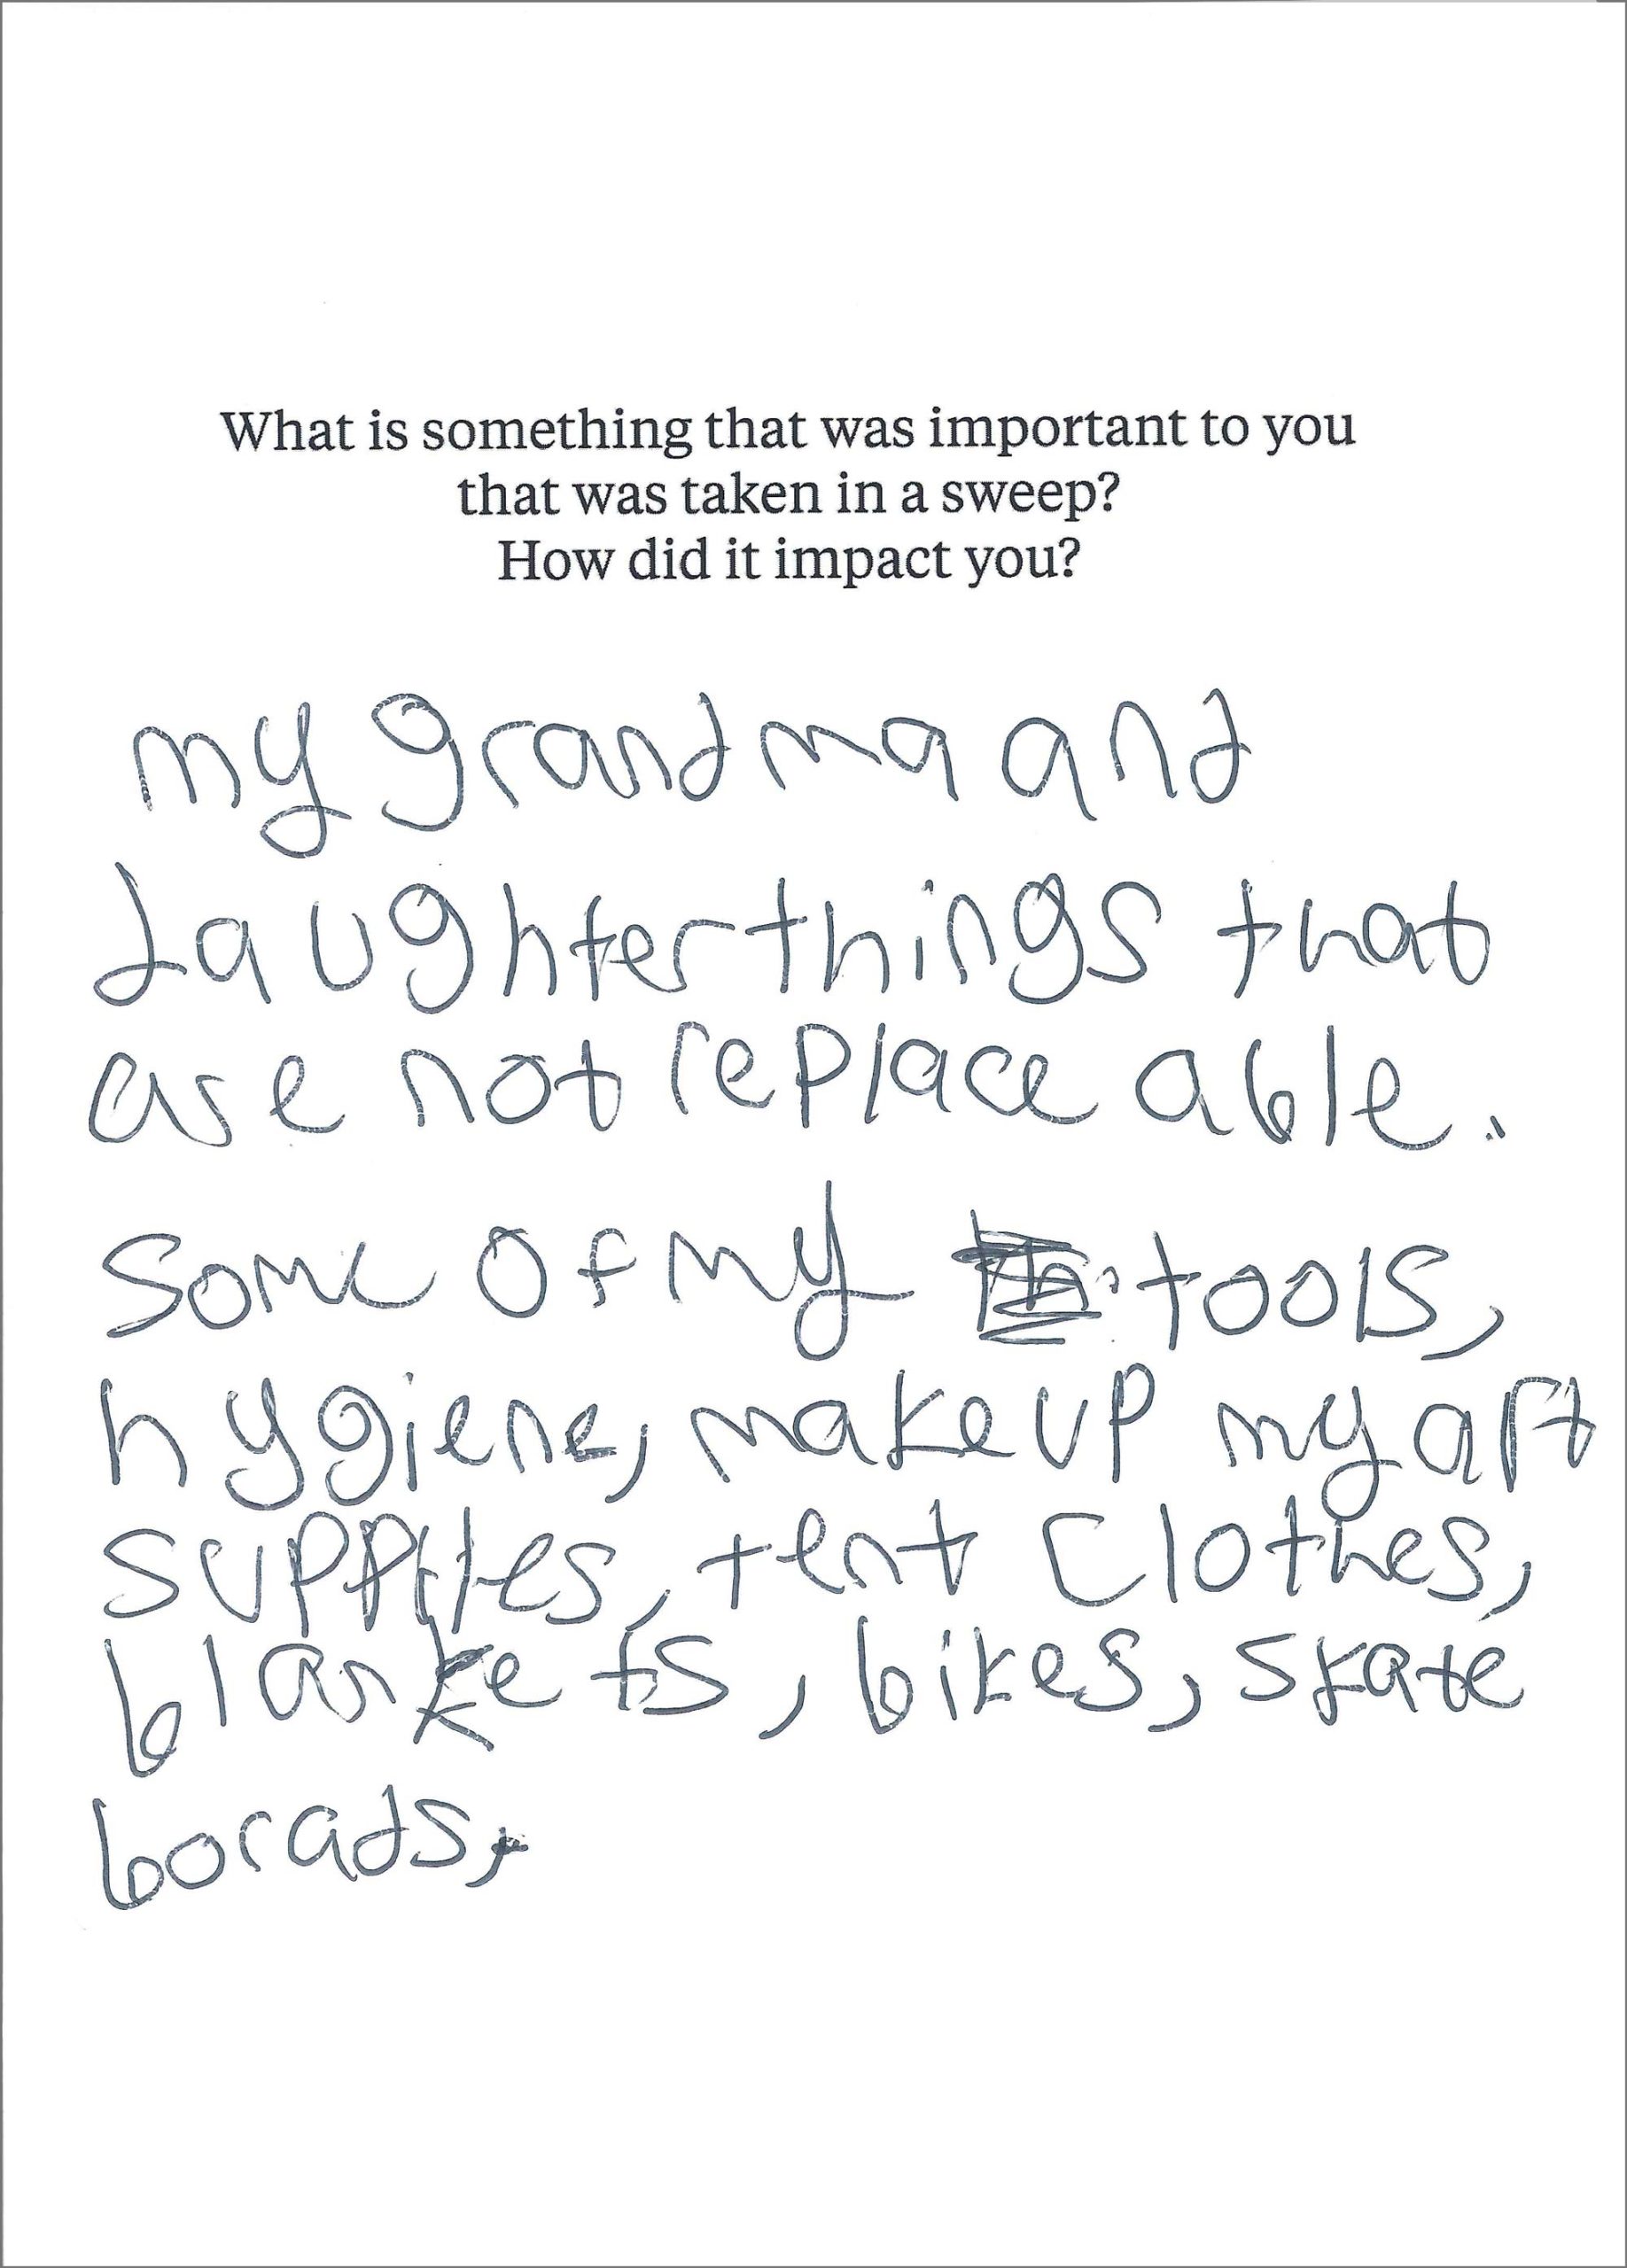 What is something that was important to you
that was taken in a sweep?
How did it impact you?
my grandma and
daughter things that
are not replace able.
Some of my tools,
hygiene, makeup my art
supplies, tent Clothes,
blankets, bikes, skate
borads,